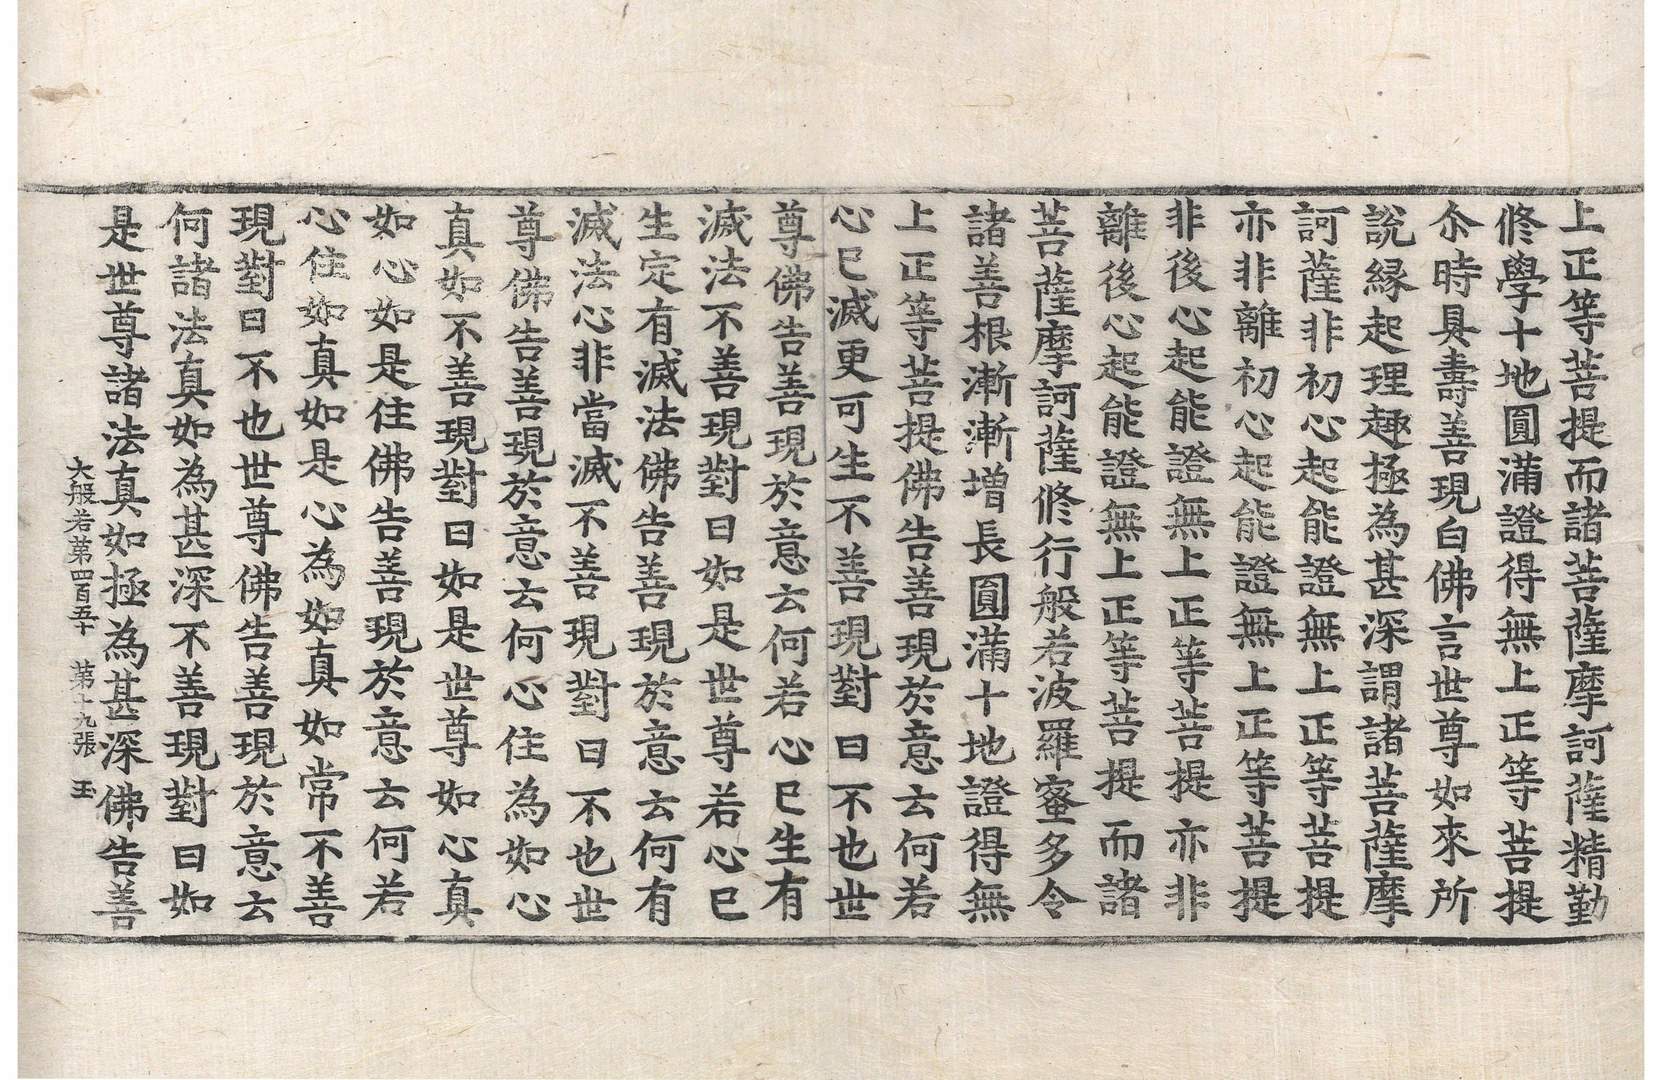 上正等菩提而諸菩薩摩訶薩精勤
修學十地圓滿證得無上正等菩提
尒時具壽善現白佛言世尊如來所
說縁起理趣極為甚深謂諸菩薩摩
訶薩非初心起能證無上正等菩提
亦非離初心起能證無上正等菩提
非後心起能證無上正等菩提亦非
離後心起能證無上正等菩提而諸
菩薩摩訶薩修行般若波羅蜜多令
諸善根漸漸增長圓滿十地證得無
上正等菩提佛告善現於意云何若
心已滅更可生不善現對曰不也世
尊佛告善現於意云何若心已生有
滅法不善現對曰如是世尊若心已
生定有滅法佛告善現於意云何有
滅法心非當滅不善現對曰不也世
尊佛告善現於意云何心住為如心
真如不善現對曰如是世尊如心真
如心如是住佛告善現於意云何若
心住如真如是心為如真如常不善
現對曰不也世尊佛告善現於意云
何諸法真如為甚深不善現對曰如
是世尊諸法真如極為甚深佛告善
大般若第四百五十　第十九張　玉